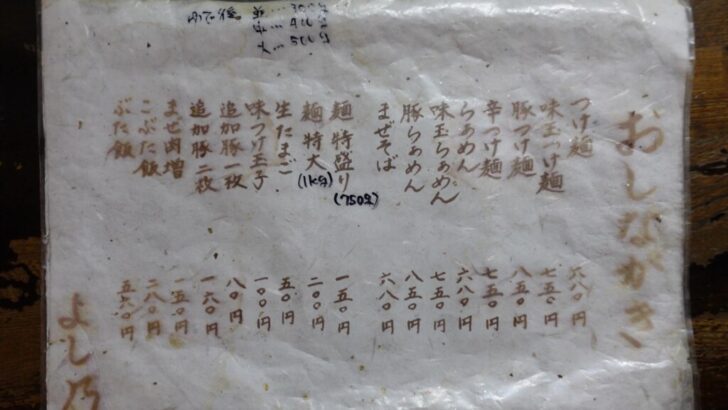 おしながき
つけ麺 六八〇円
味玉つけ麺 七五〇円
豚つけ麺 八五〇円
辛つけ麺 七五〇円
らぁめん 六八〇円
味玉らぁめん 七五〇円
豚らぁめん 八五〇円
まぜそば 六八〇円
麺 特盛り(750g) 一五〇円
麺 特大(1kg) 二〇〇円
生たまご 五〇円
味つけ玉子 一〇〇円
追加豚一枚 八〇円
追加豚二枚 一六〇円
まぜ肉増 一五〇円
こぶた飯 二八〇円
ぶた飯
よし乃
ゆで後 並…300g
中…400g
大…500g